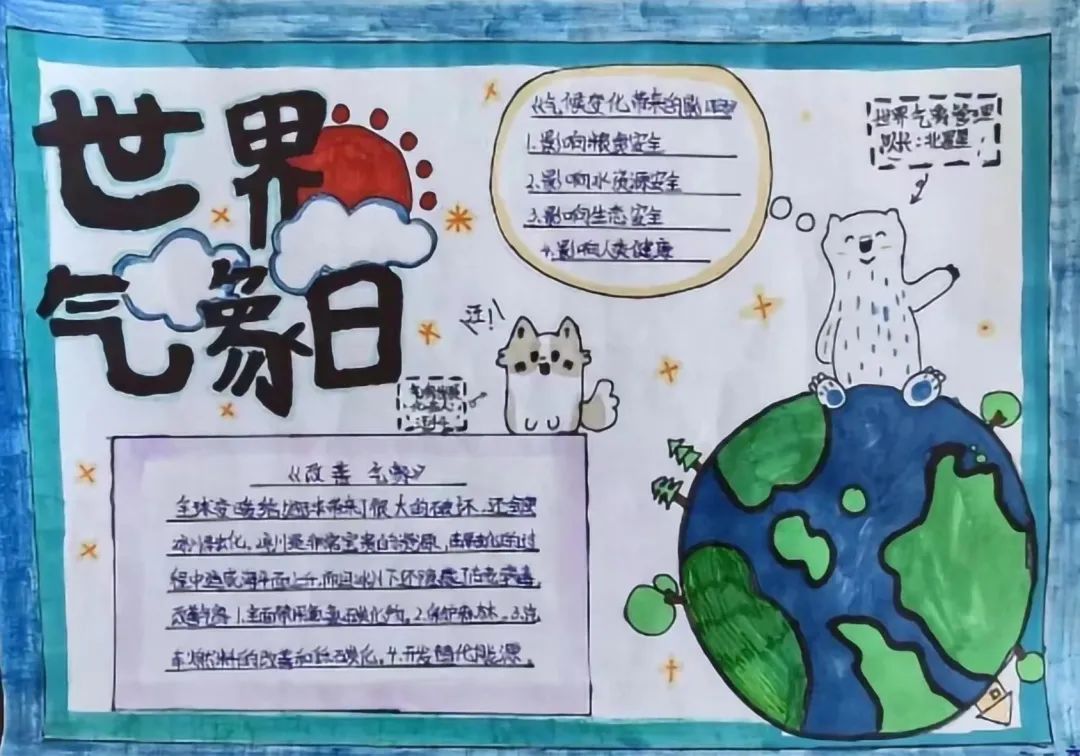 世界
气象日
《气候变化带来的影响》
1.影响粮食安全
2.影响水资源安全
3.影响生态安全
4.影响人类健康
世界气象管理
队长：北星星
汪！
《改善气候》
全球变暖给地球带来了很大的破坏，还会导
冰川融化。冰川是非常宝贵的资源，由于融化的过
程中造成海平面上升，而且冰川下还隐藏了古老病毒，
改善气候1.全面禁用氟氯碳化物。2.保护森林。3.汽
车燃料的改善和低碳化。4.开发替代能源。